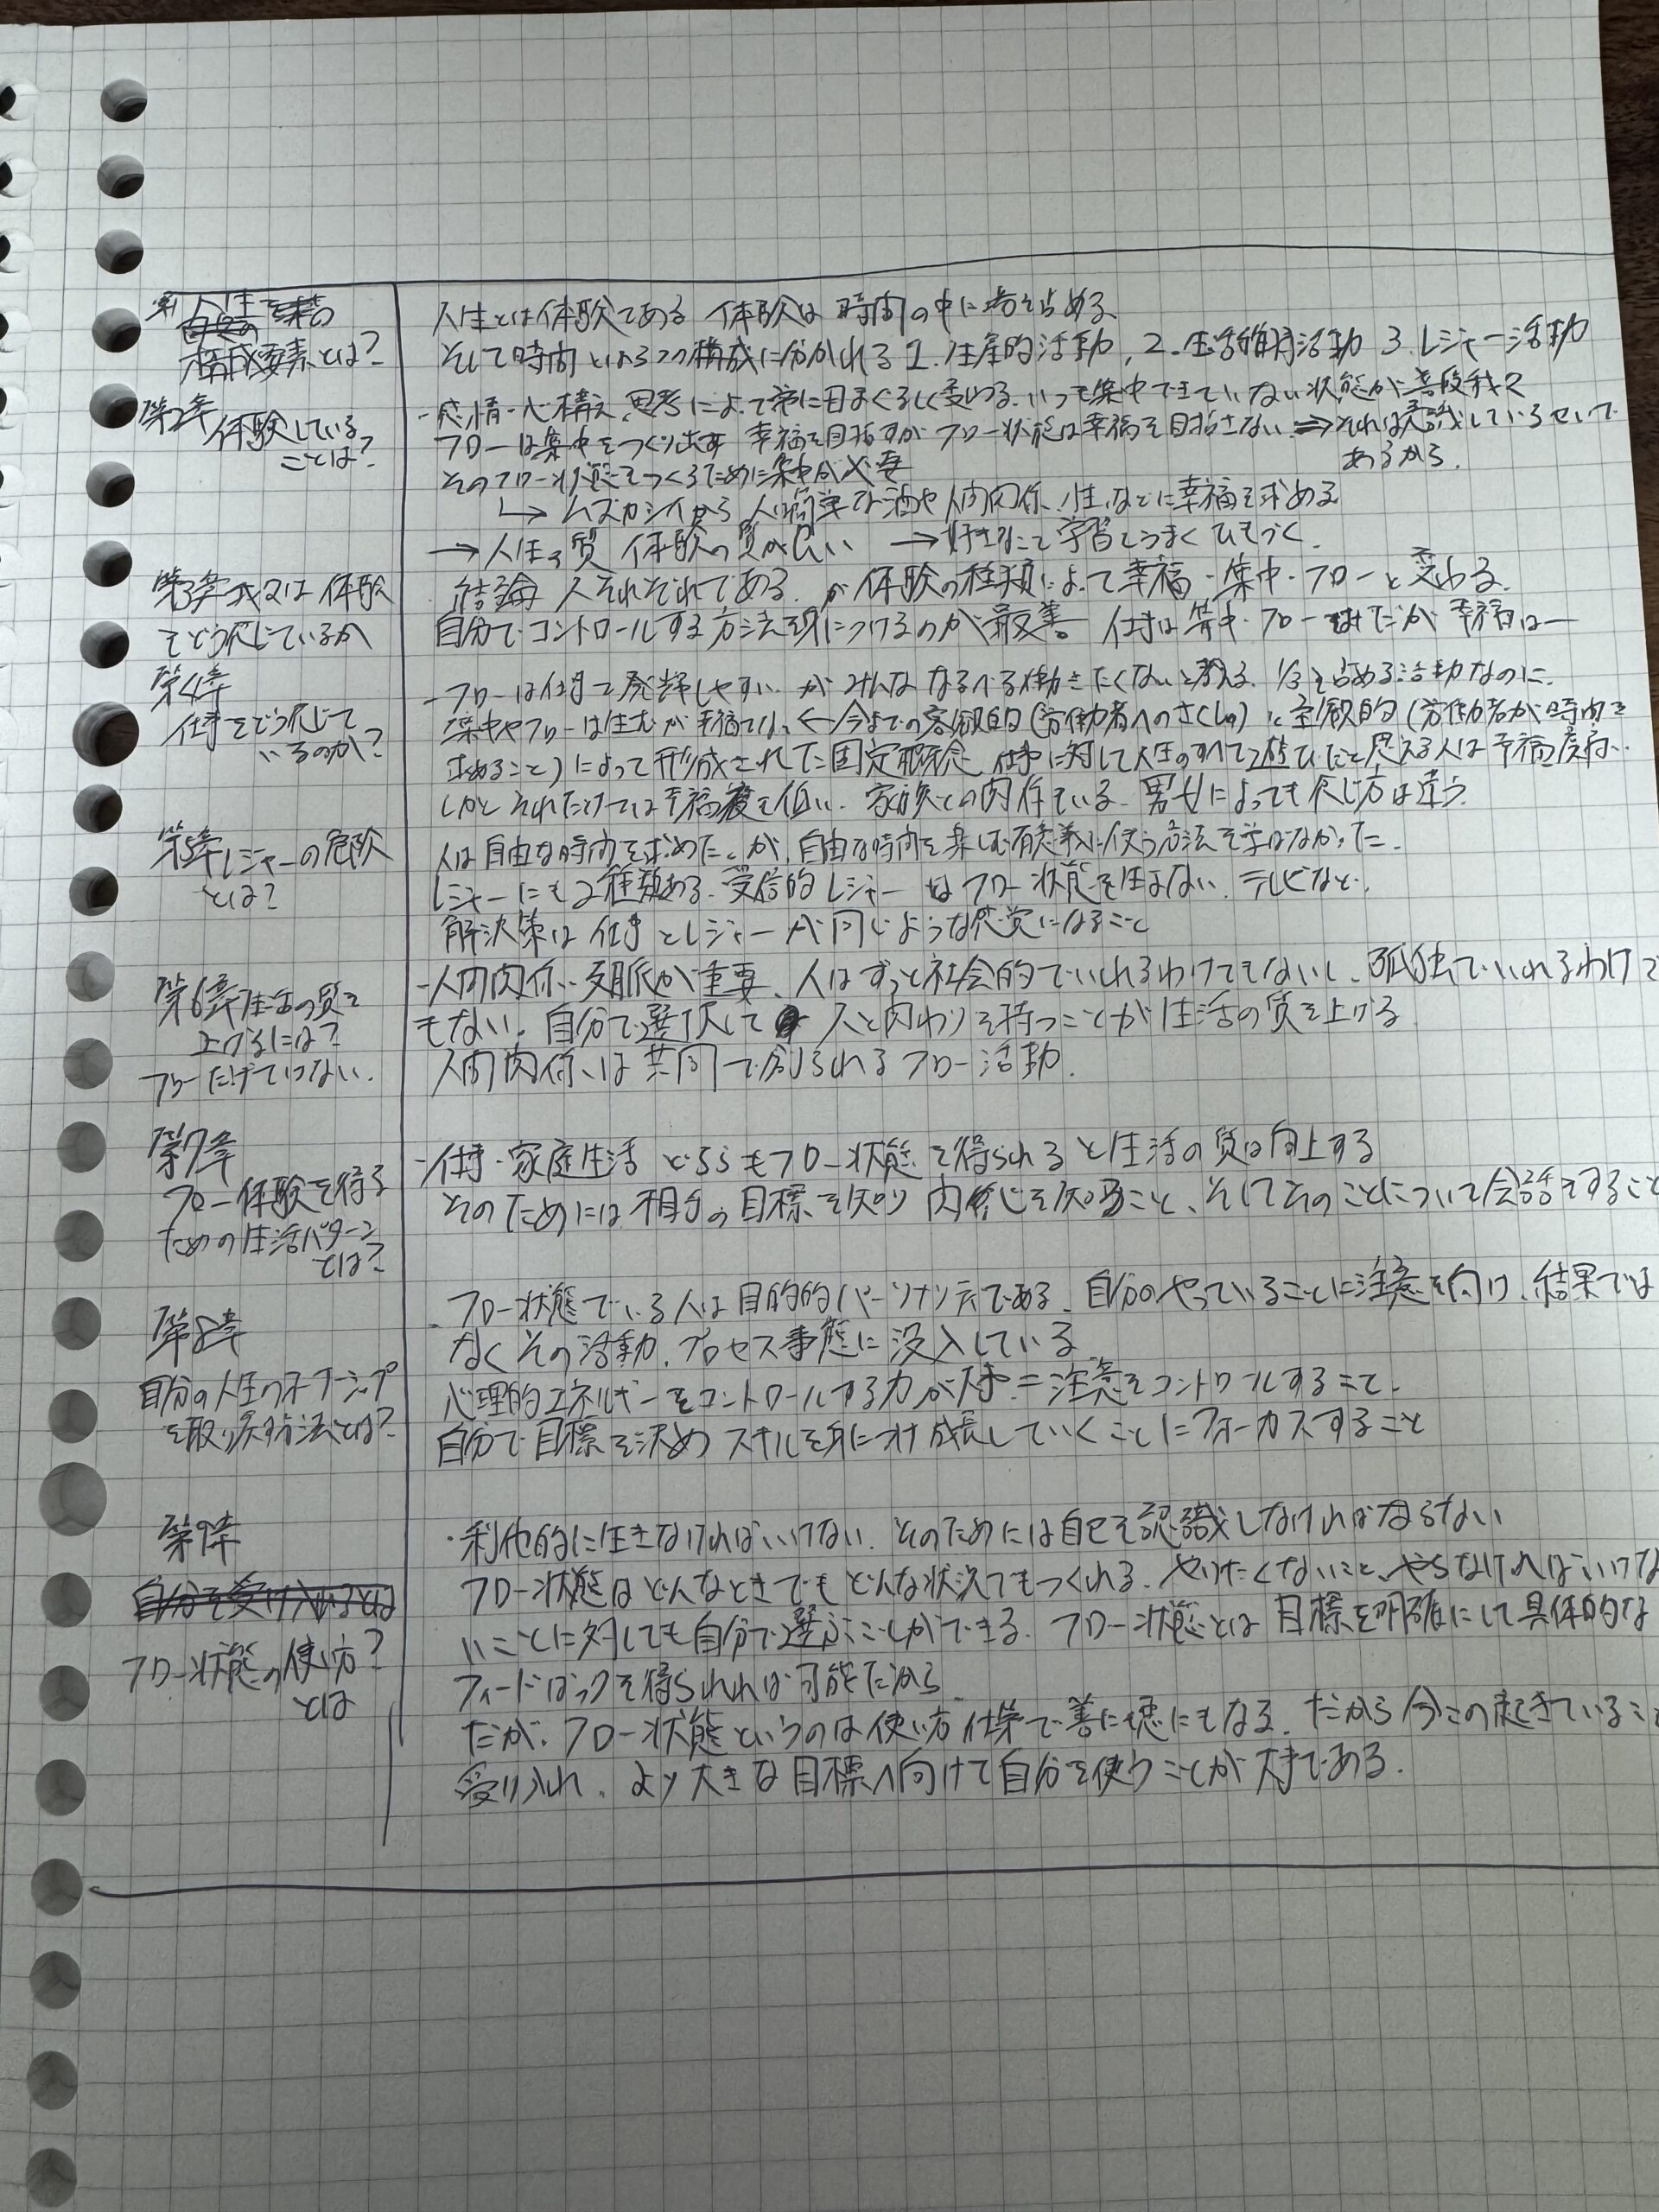 第1 人生を
構成要素とは?
人生とは体験である 体験は時間の中に
そして時間とは3つの構成に分かれる 1. 生産的活動, 2. 生活維持活動 3. レジャー活動
第2章 体験している
ことは?
- 感情・心構え、思考によって常に目まぐるしく変わる. いつも集中できていない状態が普段我々
フローは集中をつくり出す 幸福を目指すが フロー状態は幸福を目指さない. ⇒ それは意識しているせいで
あるから.
そのフロー状態をつくるために集中が必要
↳ ムズカシイから 人は簡単な酒や人間関係、性、などに幸福を求める
→ 人生の質 体験の質が良い → 好きなこと学習とうまくひもづく.
第3章 我々は体験
をどう感じているか
結論 人それぞれである. が体験の種類によって幸福・集中・フローと変わる.
自分でコントロールする方法を身につけるのが最善 仕事は集中・フロー だが 幸福は一
第4章
仕事をどう感じて
いるのか?
- フローは仕事で発揮しやすい が みんな なるべく働きたくないと考える. 1/3を占める活動なのに.
集中やフローは生むが幸福でない ← 今までの客観的(労働者へのさくしゅ)と主観的(労働者が時間を
求めること)によって形成されてた固定概念 仕事に対して人生のすべて、遊びだと思える人は幸福度高い.
しかし それだけでは幸福度も低い. 家族との関係もいる. 男女によっても感じ方は違う.
第5章 レジャーの危険
とは?
人は自由な時間を求めた。が、自由な時間を楽しむ有意義に使う方法を学ばなかった.
レジャーにも2種類ある. 受信的レジャーはフロー状態を生まない. テレビなど.
解決策は 仕事とレジャーが同じような感覚になること
第6章 生活の質を
上げるには?
フローだけでいけない.
- 人間関係・文脈が重要. 人はずっと社会的でいれるわけでもないし、孤独でいれるわけで
もない. 自分で選択して 人と関わりを持つことが生活の質を上げる
人間関係は共同で創られるフロー活動.
第7章
フロー体験を得る
ための生活パターン
とは?
- 仕事・家庭生活 どちらもフロー状態を得られると生活の質は向上する
そのためには相手の目標を知り 関心を知ること、そしてそのことについて会話をすること
第8章
自分の人生のオーナーシップ
を取り戻す方法とは?
. フロー状態でいる人は目的的パーソナリティである. 自分のやっていることに注意を向け、結果では
なくその活動、プロセス事態に没入している
心理的エネルギーをコントロールする力が大事 = 注意をコントロールすること.
自分で目標を決め スキルを身につけ成長していくことにフォーカスすること
第9章
自分を受け入れるとは
フロー状態の使い方?
とは
・利他的に生きなければいけない. そのためには自己を認識しなければならない
フロー状態はどんなときでもどんな状況でもつくれる. やりたくないこと、やらなければいけな
いことに対しても自分で選ぶことができる. フロー状態とは 目標を明確にして具体的な
フィードバックを得られれば可能だから
だが、フロー状態というのは使い方仕第で善にも悪にもなる. だから今この起きていること
受け入れ、より大きな目標へ向けて自分を使うことが大事である.